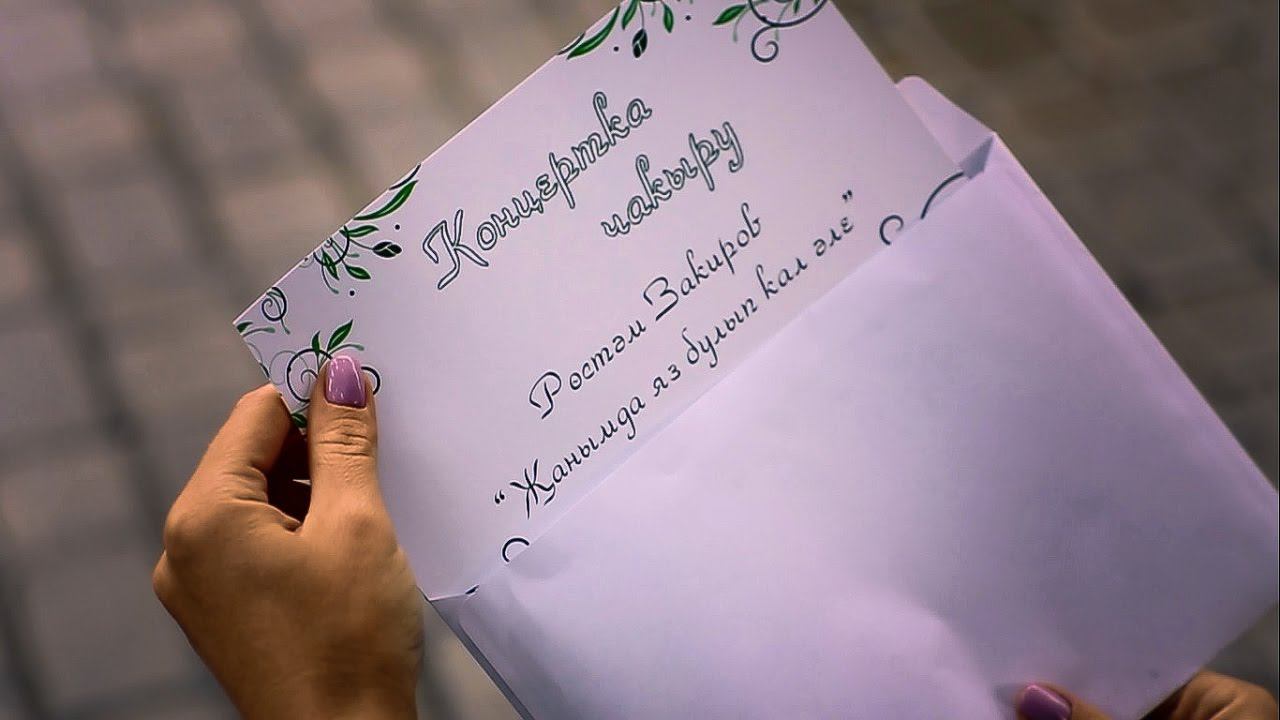 Концертка
чакыру
Рөстәм Закиров
“Җанымда яз булып кал әле”